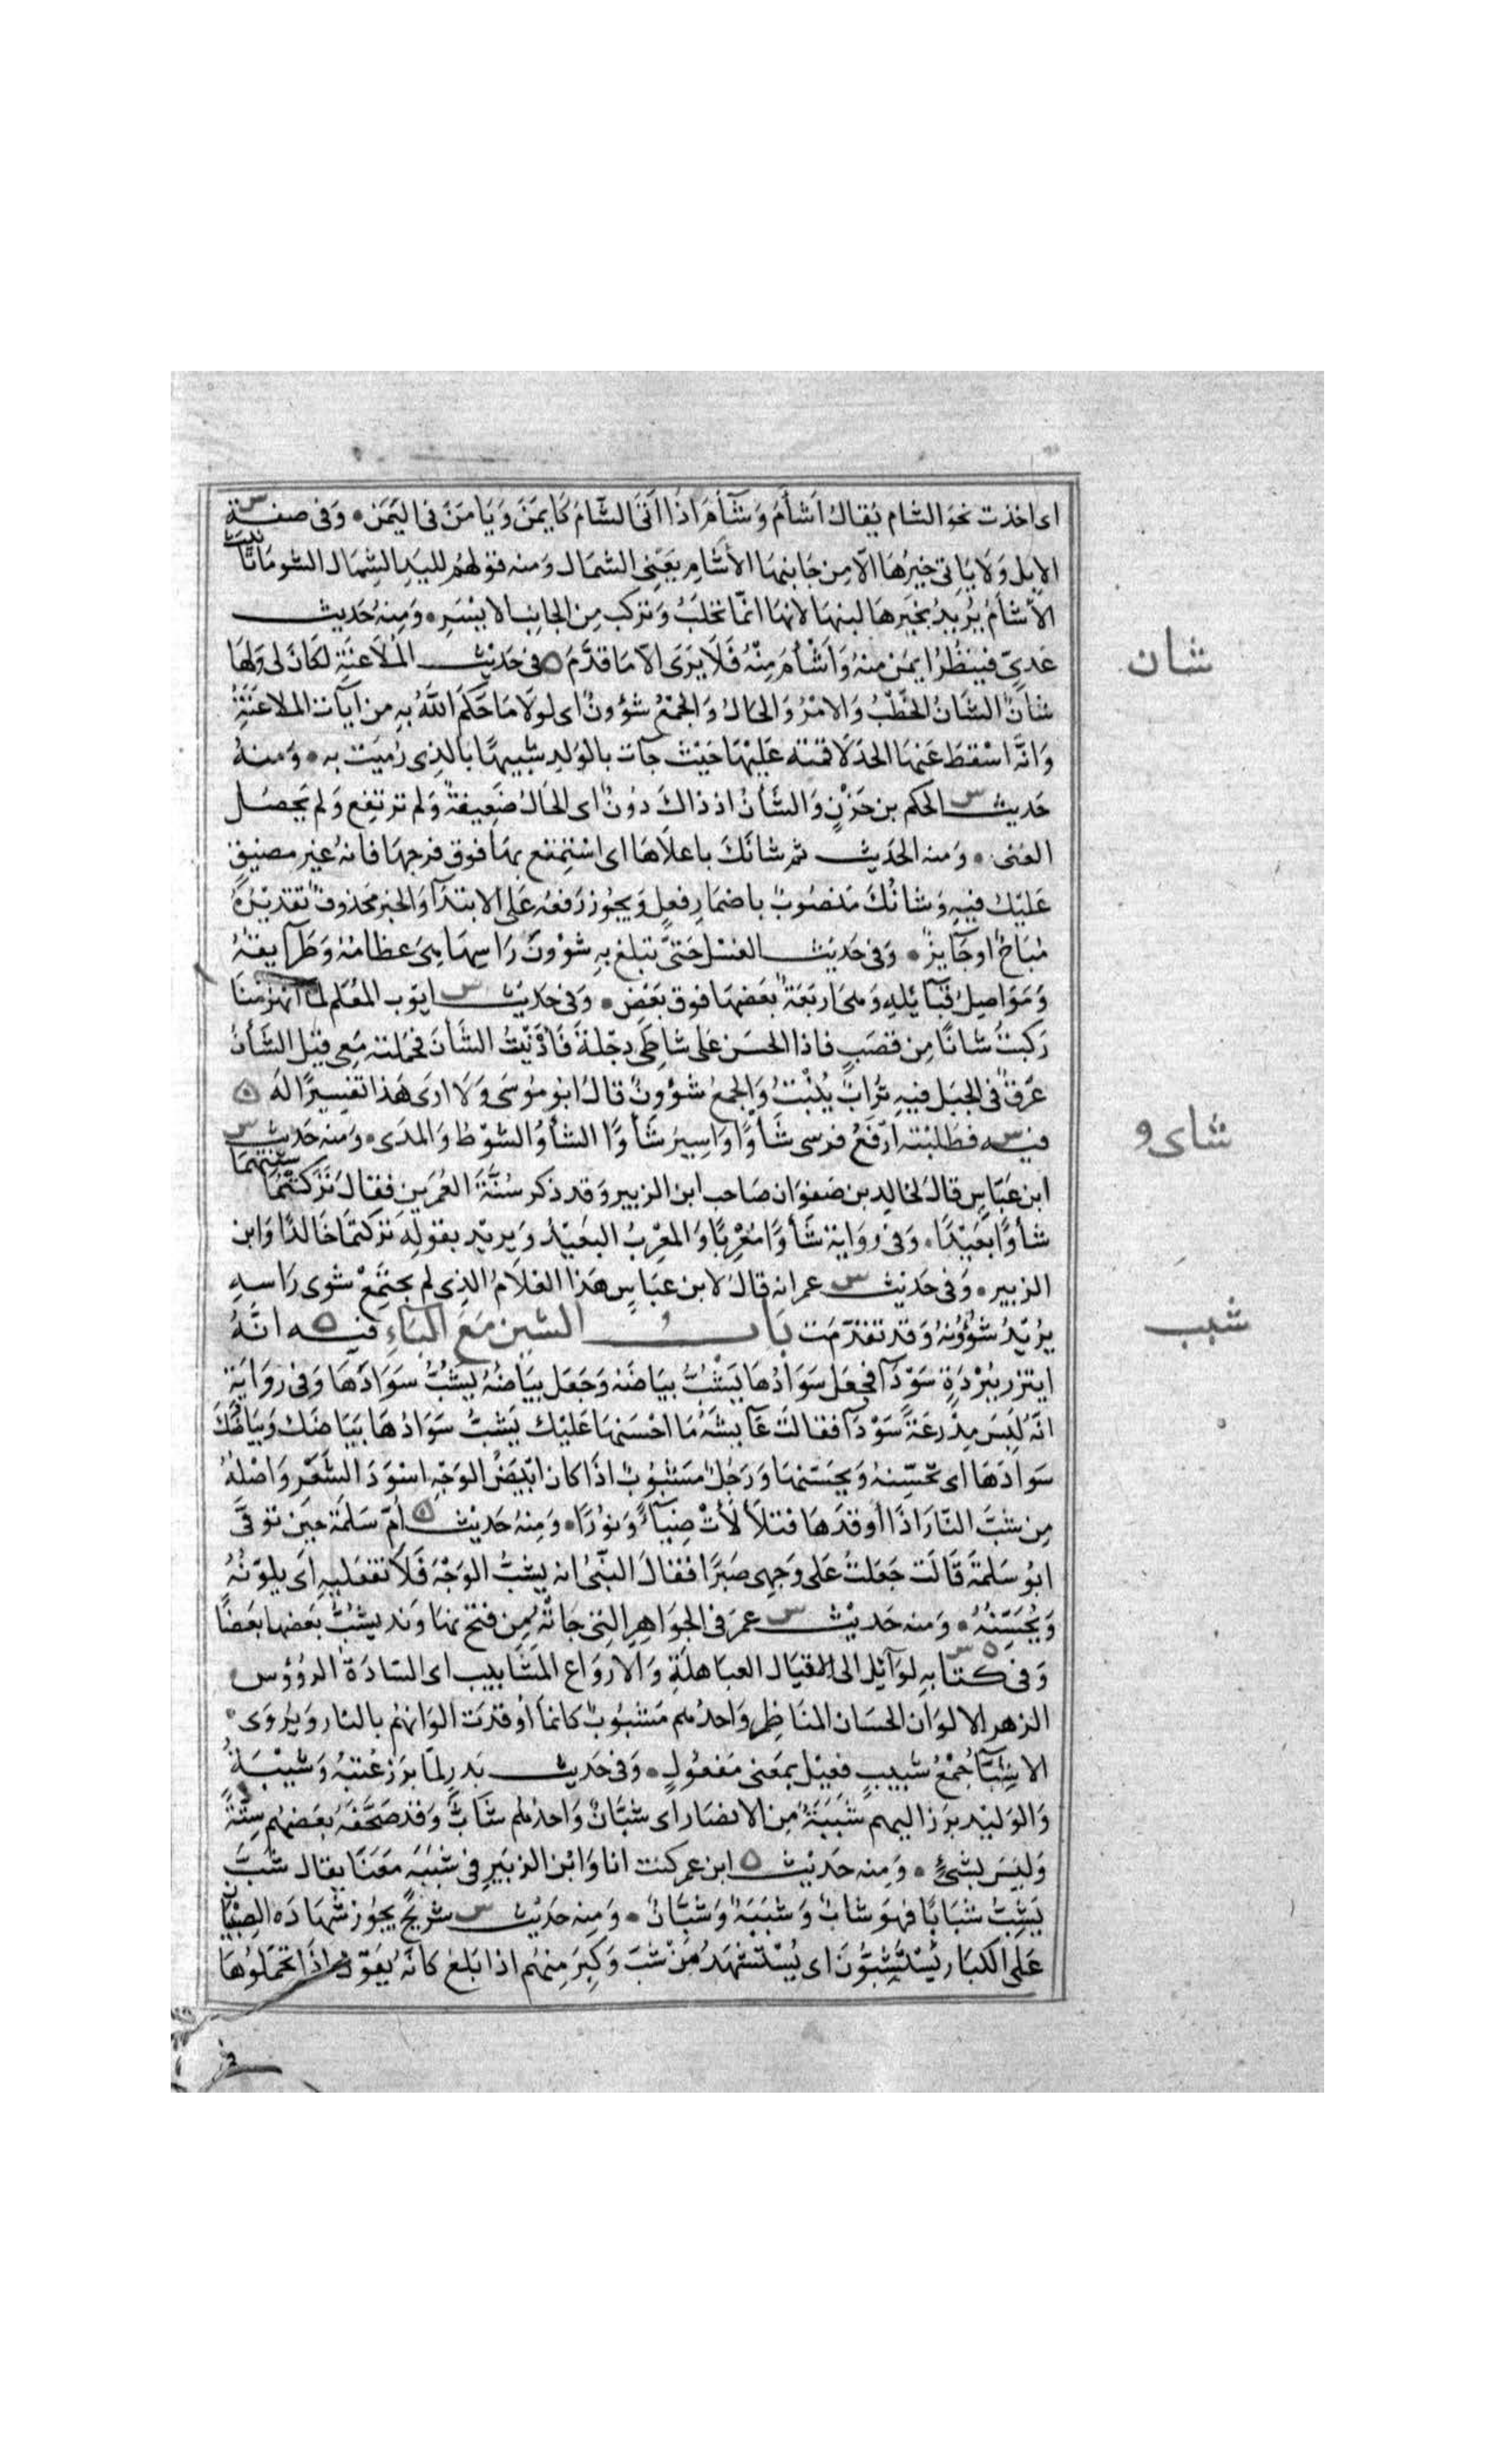 اى اخذت نحو الشام يُقال اَشأمُ وَشَآءَمَ اذا اَتى الشّامَ كَايمَنَ وَيَامَنَ فى اليَمَن • وَفى صفة س
الابل وَلَا يَاتى خيرُهَا الّا مِن جَانبهَا الأشَامِ يَعْنِى الشمَال وَمنه قولهُم لليَدِ الشِمَال الشومَا تانيث
الأشأمُ يُرِيدُ بخيرهَا لبنهَا لانهَا انّما تحلَبُ وَتركب مِن الجانب الايسَرِ • وَمِنهُ حَديث
عَدىّ فينظُرُ ايمَن منهُ وَاَشْأمَ مِنْهُ فَلَا يَرَى الّا مَا قدَّمَ ه فى حَديث المُلَاعنَةِ لكانَ لى وَلهَا
شَانٌ الشَانُ الخَطْبُ وَالامْرُ وَالحَالُ وَالجمْعُ شؤونٌ اى لولَا مَا حَكَمَ اللّهُ بِهِ من ايَات الملَاعنَةِ
وَانّه اسْقطَ عَنهَا الحدَّ لَاقمته عَليْهَا حَيْث جآت بالوَلدِ شبيهًا بالذِى رُمِيَت به • وَمنهُ
حَديث س الحكم بن حَزْنٍ وَالشَأنُ اذ ذاكَ دُونٌ اى الحَالُ ضَعِيفةٌ وَلم ترتفع وَلم يَحصُل
الغنى • وَمنه الحَديث ثم شانَكَ باعلَاهَا اى اسْتمْتع بهَا فوق فرجهَا فانهُ غير مضيّق
عَليْك فيهِ وَشانُكَ مَنصُوبٌ باضمَار فِعلٍ وَيجُوز رَفعُه عَلى الابتدَآ وَالخبر مَحذوفٌ تقديرُهُ
مُبَاحٌ اوجَآيزٌ • وَفى حَديث الغسْل حَتىَّ تبلغ بهِ شؤونَ رَاسِهَا هِىَ عظامُهُ وَطَرآيقهُ
وَمَوَاصِلُ قبَآئلِهِ وَهىَ اربَعَةٌ بَعضهَا فوق بَعْضٍ • وَفى حَديث س ايوّب المعَلم لمّا انهزمنَا
رَكبْتُ شانًا مِن قصَبٍ فاذا الحَسَن عَلى شاطِى دِجْلَةَ فَادْنيْتُ الشَأنَ فحَملته مَعِى قيْل الشَأنُ
عَرقٌ فى الجبَل فيهِ تُرَابٌ يُنْبِتُ وَالجمعُ شؤُونٌ قالَ ابو مُوسَى وَلَا ارَى هَذا تفسِيرًا لَه ه
فيه س فطَلبْته ارْفَعُ فرسى شَأوًا وَاسِيرُ شَأوًا الشَأوُ الشوْطُ وَالمدَى • وَمنه حَديث س
ابن عَبَّاس قالَ لخَالِدِ بن صَفوَان صَاحب ابن الزبير وَقد ذكر سُنَّةَ العُمَرَين فقالَ تَرَكتُمَا سنتهما
شأوًا بَعيْدًا • وَفى روَاية شَأوًا مُغْرِبًا وَالمغْرِبُ البعَيْدُ وَيريْد بقولِه تركتمَا خَالدًا وَابن
الزبير • وَفى حَديث س عمر انه قالَ لابن عبَاسٍ هَذا الغلَامُ الذِى لم يجتمِعْ شوى رَاسه
يرُيْدُ شؤُونُهُ وَقد تقدّمَت بَابُ الشين مَعَ البَآءِ فيه ه انّهُ
ايتزر ببُرْدَةٍ سَوْدَآ فجعَل سَوَادُهَا يَشُبُّ بيَاضَه وَجَعَل بيَاضُهُ يَشُبُّ سَوَادَهَا وَفى روَايَةٍ
انّه لَبِسَ مِدْرعَةً سَوْدَآ فقالَت عَايِشَةُ مَا احْسَنهَا عَليْك يَشُبُّ سَوَادُهَا بَيَاضَك وَبيَاضُكَ
سَوَادَهَا اى تحَسّنهُ وَيحَسّنهَا وَرَجُلٌ مَشبُوبٌ اذَا كان ابْيَضُ الوَجْهِ اسْوَدَ الشَعْر وَاصْلهُ
مِن شبّ النّارَ اذَا أوقدَهَا فتلألأتْ ضيَآءً وَنوُرًا • وَمِنهُ حَديث ه اُمّ سَلمَة حِينَ توفىَّ
ابوُ سَلمَةَ قَالَت جَعَلتُ عَلى وَجهى صَبرًا فقالَ النَبّىُ انه يشبُّ الوَجْهَ فَلَا تفعَليهِ اَى يلوّنُهُ
وَيُحَسِّنُهُ • وَمنه حَديْث س عمرَ فى الجوَاهِرِ التِى جَآتْهُ مِن فتح نهَاوَند يشبُّ بعضهَا بَعَضًا
وَفى كتابِه ه س لوَآئل الى الاقيَال العبَاهلَةِ وَالارْوَاع المشَابيب اى السَادَة الرؤوس
الزهر الالوَان الحسَان المنَاظر وَاحدُهم مَشبُوبٌ كانمَا أوقدَت الوَانهُم بالنار وَيرُوَى
الاشِبّآ جَمْعُ شبيبٍ فعيْل بمَعنى مَفعُولٍ • وَفى حَديث بَدرٍ لمّا برَز عُتبَةُ وَشيْبَةُ
وَالوَليْد برَز اليهم شَبَبَةٌ مِن الانصَار اى شبّانٌ وَاحدُهم شَابٌّ وَقد صَحّفَهُ بعَضهُم ستّةٌ
وَليسَ بشىءٍ • وَمِنه حَديْث ه ابن عمر كنت انا وَابْن الزبَير فى شَبَبَة مَعَنَا يقال شبَّ
يَشِبُّ شبَابًا فهوَ شابٌ وَشَبَبَةٌ وَشبَّانٌ • وَمِنه حَديْث س شريْحٍ يجوُز شهَادَة الصِبْيَان
عَلى الكبَار يُسْتَشَبُّونَ اى يُسْتشهَدُ مَنْ شَبَّ وَكبِرَ مِنهُم اذا بَلغ كانّهُ يقوُل اذَا تحَمّلوُهَا
فى
شان
شاى و
شبب